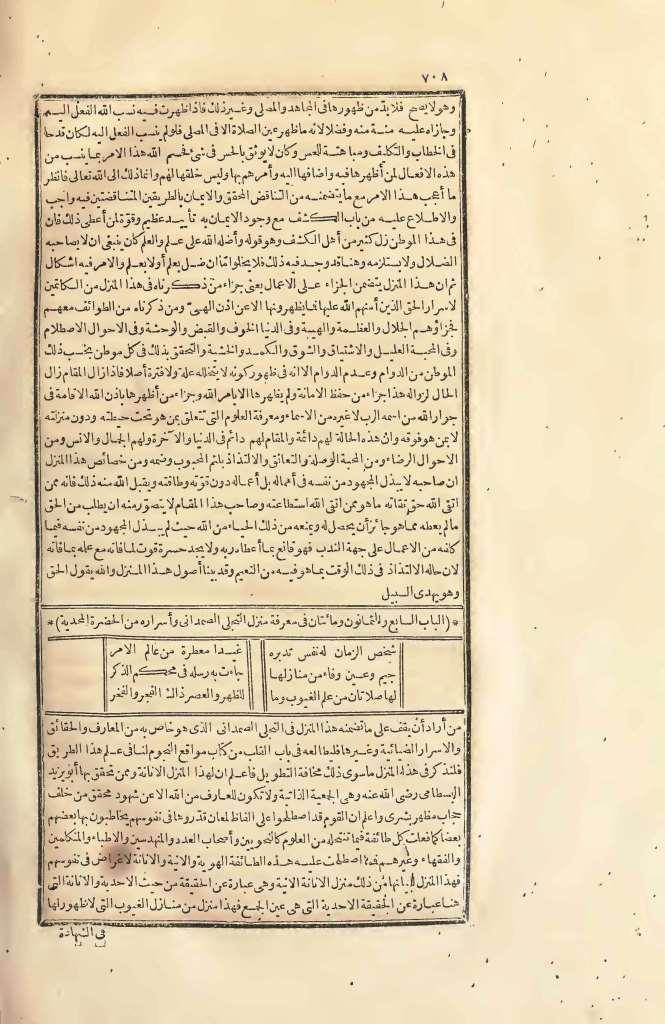 ٧٠٨
وهو لا يصح فلا بد من ظهورها فى المجاهد والمصلى وغير ذلك فاذا ظهرت فيه نسب الله الفعل اليه
وجازاه عليه منة منه وفضلا لانه ما ظهر عين الصلاة الا فى المصلى فلو لم ينسب الفعل اليه لكان قدحا
فى الخطاب والتكليف ومباهتة للحس وكان لا يوثق بالحس فى شئ فحسم الله هذا الامر بما ينسب من
هذه الافعال لمن أظهرها فيه واضافها اليه وأمرهم بها وليس خلقها لهم وانما ذلك الى الله تعالى فانظر
ما أعجب هذا الامر مع ما يتضمنه من التناقض المحقق والايمان بالطريقين المتناقضتين فيه واجب
والاطلاع عليه من باب الكشف مع وجود الايمان به تأييد عظيم وقوة لمن أعطى ذلك فان
فى هذا الموطن زل كثير من أهل الكشف وهو قوله وأضله الله على علم والعلم كان ينبغى ان لا يصاحبه
الضلال ولا يستلزمه وهنا قد وجد فيه ذلك فلا يخلو اما ان ضل بعلم أو لا يعلم والامر فيه اشكال
ثم ان هذا المنزل يتضمن الجزاء على الاعمال يعنى جزاء من ذكرناه فى هذا المنزل من الكاتمين
لاسرار الحق الذين أمنهم الله عليها فما يظهرونها الا عن اذن الهى ومن ذكرناه من الطوائف معهم
فجزاؤهم الجلال والعظمة والهيبة وفى الدنيا الخوف والقبض والوحشة وفى الاحوال الاصطلام
وفى المحبة العليل والاشتياق والشوق والكمد والخشية والتحقق بذلك فى كل موطن بحسب ذلك
الموطن من الدوام وعدم الدوام الا انه فى ظهور كونه لا يتخلله علة ولا فترة أصلا فاذا زال المقام زال
الحال لزواله هذا جزاء من حفظ الامانة ولم يظهرها الا بامر الله وجزاء من أظهرها باذن الله الاقامة فى
جوار الله من اسمه الرب لا غيره من الاسماء ومعرفة العلوم التى تتعلق بمن هو تحت حيطته ودون منزلته
لا بمن هو فوقه وان هذه الحالة لهم دائمة والمقام لهم دائم فى الدنيا والآخرة ولهم الجمال والانس ومن
الاحوال الرضاء ومن المحبة الوصلة والتعانق والالتذاذ بلثم المحبوب وضمه ومن خصائص هذا المنزل
ان صاحبه لا يبذل المجهود من نفسه فى أعماله بل أعماله دون قوته وطاقته ويقبل الله منه ذلك فانه ممن
اتقى الله حق تقاته ما هو ممن اتقى الله استطاعته وصاحب هذا المقام لا يتصور منه ان يطلب من الحق
ما لم يعطه مما هو جائز أن يحصل له ويمنعه من ذلك الحياء من الله حيث لم يبذل المجهود من نفسه فيما
كلفه من الاعمال على جهة الندب فهو قانع بما أعطاه ربه ولا يجد حسرة فوت لما فاته مع علمه بما فاته
لان حاله الالتذاذ فى ذلك الوقت بما هو فيه من النعيم وقد بينا أصول هذا المنزل والله يقول الحق
وهو يهدى السبيل
*(الباب السابع والثمانون ومائتان فى معرفة منزل التجلى الصمدانى وأسراره من الحضرة المحمدية)*
شخص الزمان له نفس تدبره غيدا معطرة من عالم الامر
جيم وعين وفاء من منازلها جاءت به رسله فى محكم الذكر
لها صلاتان من علم الغيوب وما للظهر والعصر ذاك الفجر والفخر
من أراد أن يقف على ما تضمنه هذا المنزل فى التجلى الصمدانى الذى هو خاص به من المعارف والحقائق
والاسرار الضيائية وغيرها فليطالعه فى باب القلب من كتاب مواقع النجوم لنا فى علم هذا الطريق
فلنذكر فى هذا المنزل ما سوى ذلك مخافة التطويل فاعلم ان لهذا المنزل الانانة وممن تحقق بها أبو يزيد
البسطامى رضى الله عنه وهى الجمعية الذاتية ولا تكون للعارف من الله الا عن شهود محقق من خلف
حجاب مظهر بشرى واعلم ان القوم قد اصطلحوا على الفاظ لمعان قدروها فى نفوسهم يخاطبون بها بعضهم
بعضا كما فعلت كل طائفة فيما تنتحله من العلوم كالنحويين وأصحاب العدد والمهندسين والاطباء والمتكلمين
والفقهاء وغيرهم فما اصطلحت عليه هذه الطائفة الهوية والانية والانانة لاغراض فى نفوسهم
فهذا المنزل من ذلك منزل الانانة الانية وهى عبارة عن الحقيقة من حيث الاحدية والانانة التى
هنا عبارة عن الحقيقة الاحدية التى هى عين الجمع فهذا منزل من منازل الغيوب التى لا ظهور لها
فى الشهادة